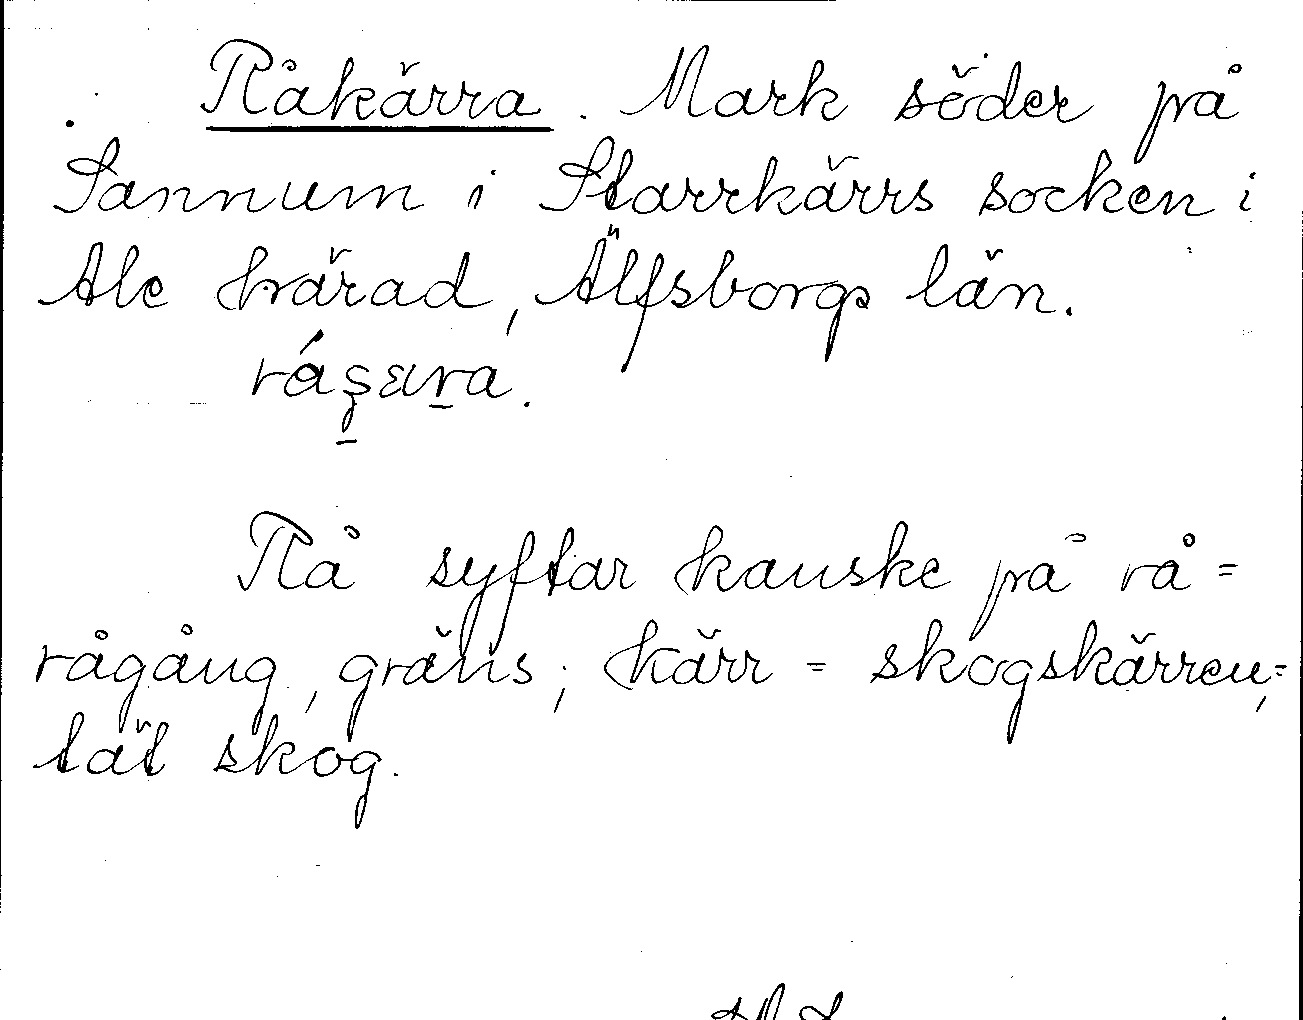 Råkärra. Mark söder på
Sannum i Starrkärrs socken i
Ale härad, Älfsborgs län.
Rå syftar kanske på rå =
rågång, gräns; kärr = skogskärren,=
tät skog.